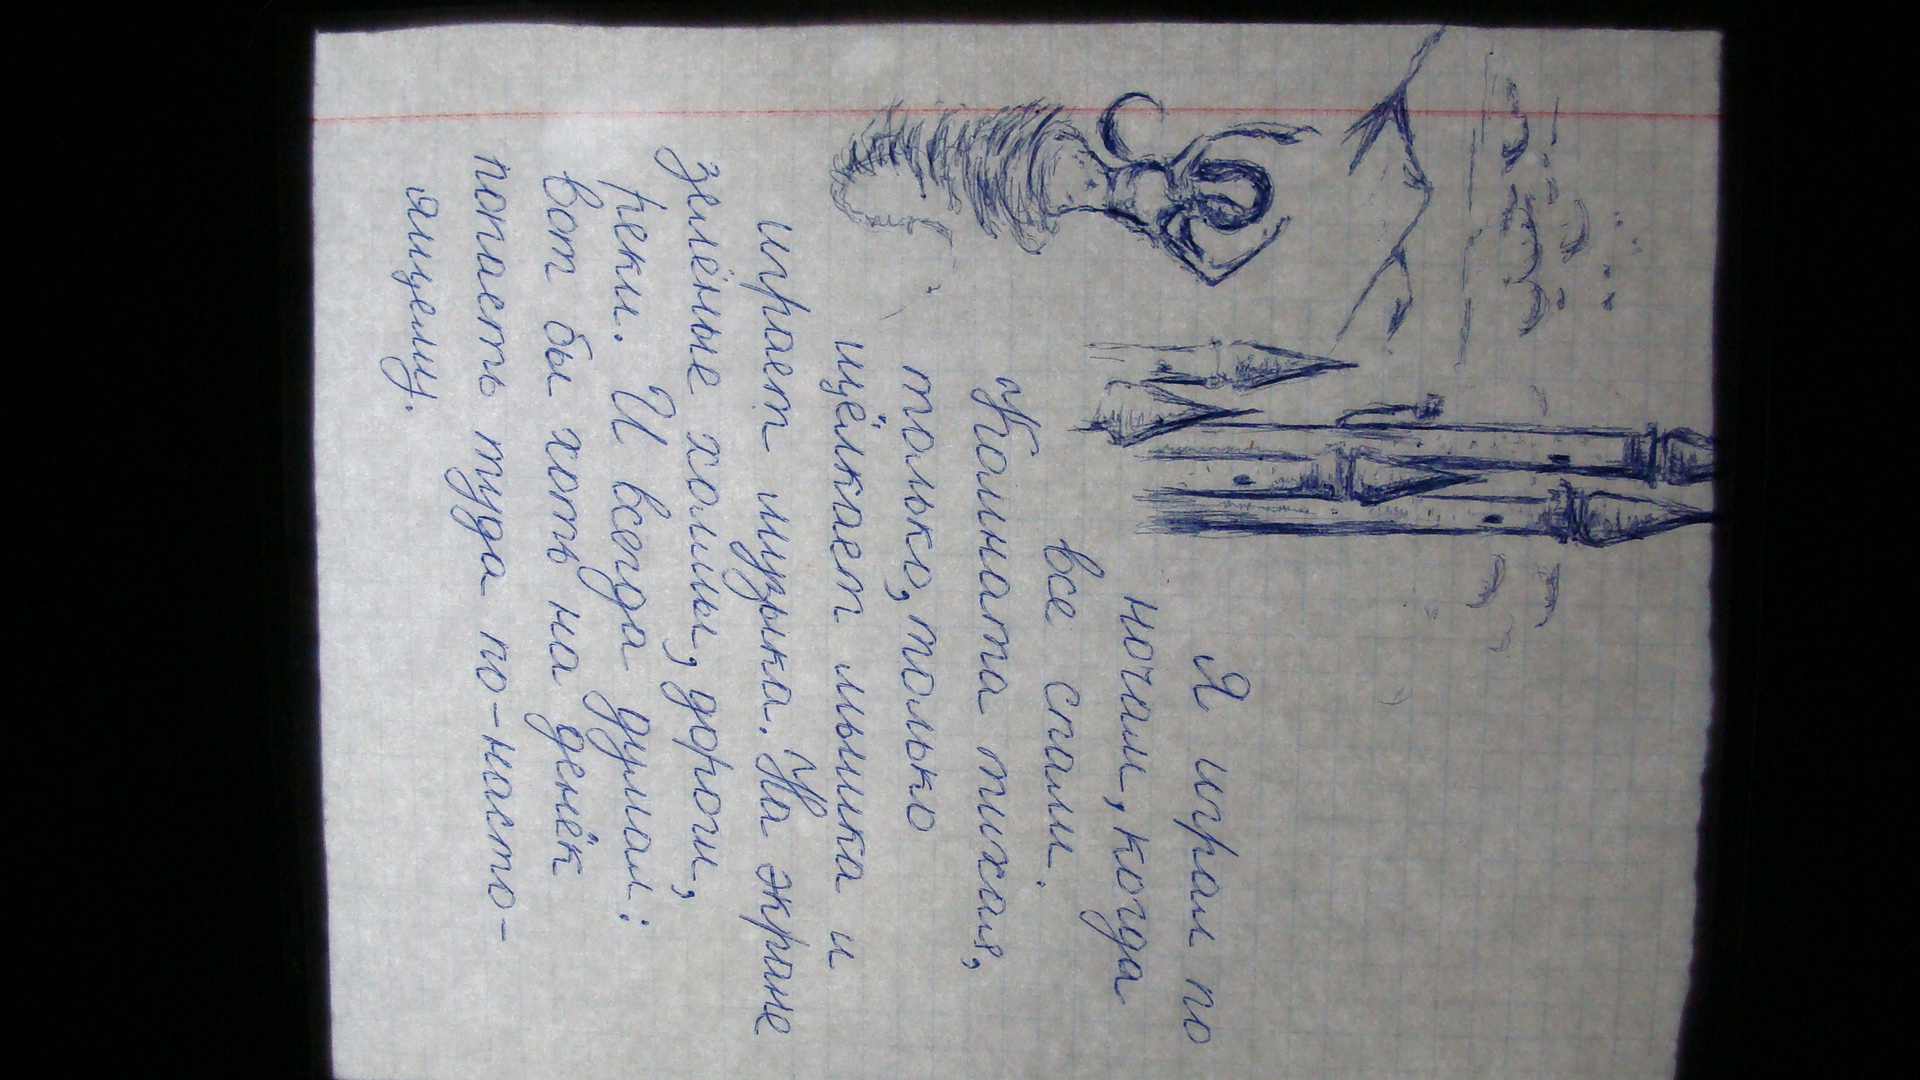 Я играл по
ночам, когда
все спали.
Комната тихая,
только, только
щёлкает мышка и
играет музыка. На экране
зелёные холмы, дороги,
реки. И всегда думал:
вот бы хоть на денёк
попасть туда по-насто-
ящему.